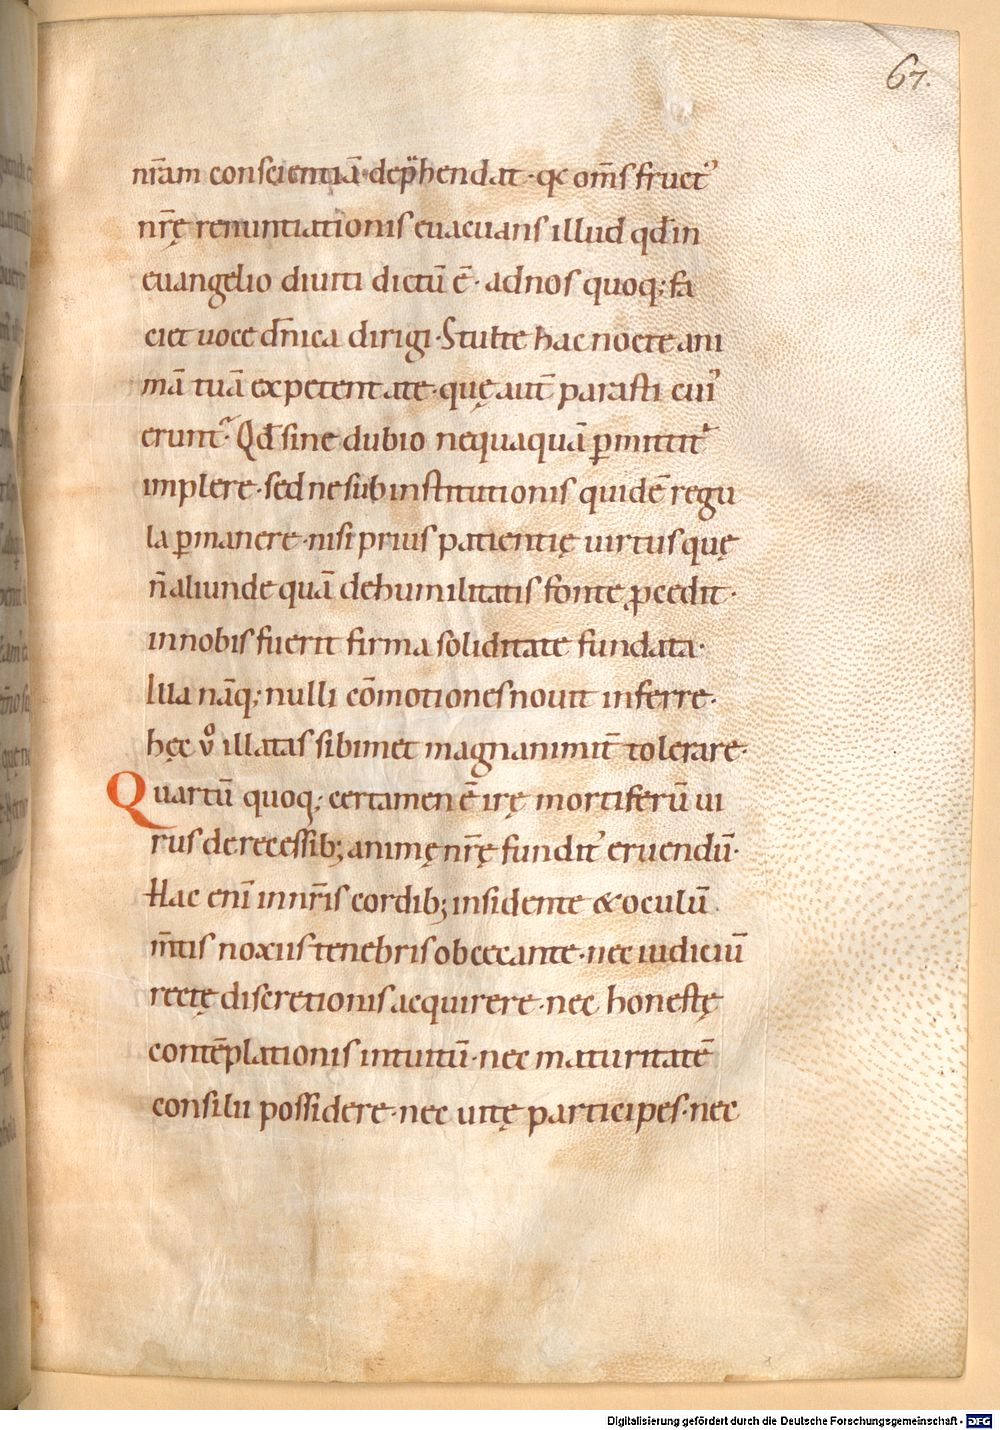 67.
nr̄am conscientiā· dep̄hendat· qȩ om̄s fruct᾽
nr̄ę renuntiationis euacuans illud qd̄ in
euangelio diuiti dictū ē· ad nos quoq; fa
ciet uoce dn̄ica dirigi· Stulte hac nocte ani
mā tuā expetent a te· quę aut̄ parasti cui᾽
erunt᾽· Qd̄ sine dubio nequaquā ꝑmittit᾽
implere· sed ne sub institutionis quidē regu
la ꝑmanere· nisi prius patientię uirtus quę
n̄ aliunde quā de humilitatis fonte ꝓcedit·
in nobis fuerit firma soliditate fundata·
Illa nāq; nulli cōmotiones nouit inferre·
hęc ů illatas sibimet magnanimit̄ tolerare·
Quartū quoq; certamen ē irę mortiferū ui
rus de recessib; animę nr̄ę fundit᾽ eruendū·
Hac enī in nr̄is cordib; insidente & oculū
m̄tis noxiis tenebris obcecante· nec iudiciū
rectę discretionis acquirere· nec honestę
contēplationis intuitū· nec maturitatē
consilii possidere· nec uitę participes· nec
Digitalisierung gefördert durch die Deutsche Forschungsgemeinschaft - DFG